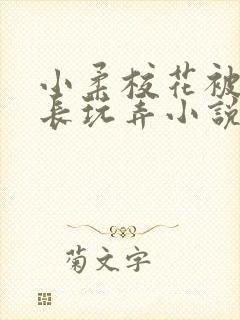 小柔校花被
長玩弄小說
菊文字